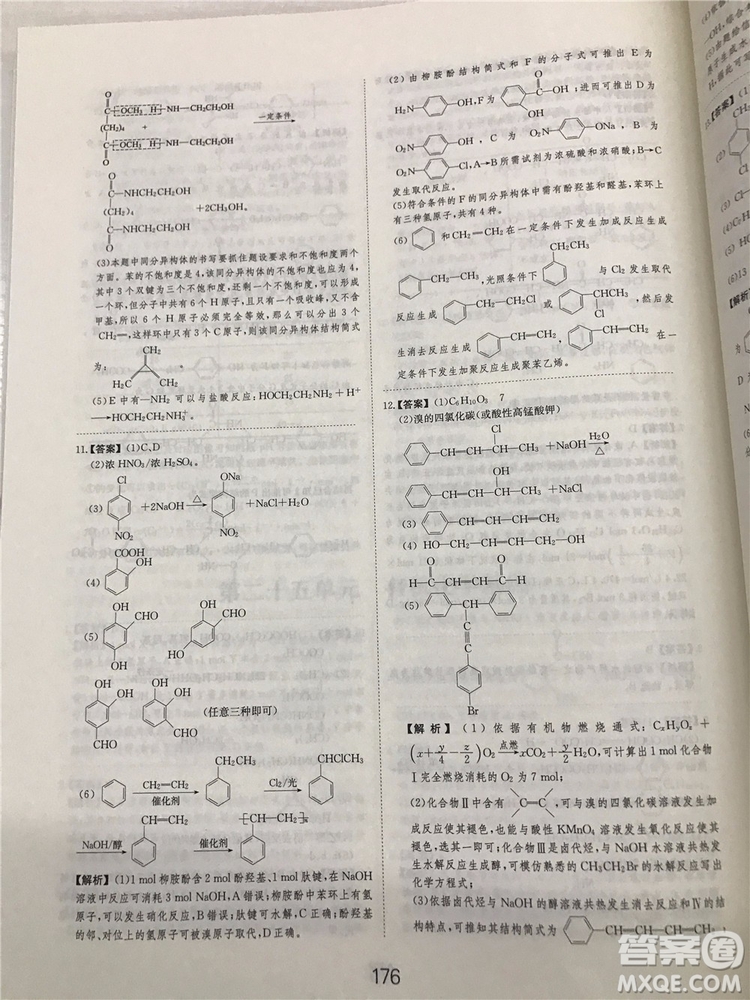 O
C—OCH₃ H—NH—CH₂CH₂OH
(CH₂)₄ + 一定条件
C—OCH₃ H—NH—CH₂CH₂OH
O
O
C—NHCH₂CH₂OH
(CH₂)₄ +2CH₃OH。
C—NHCH₂CH₂OH
O
(3)本题中同分异构体的书写要抓住题设要求和不饱和度两个
方面。苯的不饱和度是4,该同分异构体的不饱和度也应为4,
其中3个双键为三个不饱和度,还差一个不饱和度,可以形成
一个环,但分子中共有6个H原子,且只有一个吸收峰,又不含
甲基,所以6个H原子必须完全等效,那么可以分出3个
CH₂=,这样环中3个C原子,则该同分异构体结构简式
CH₂
为:
H₂C CH₂
(5)E中有—NH₂可以与盐酸反应:HOCH₂CH₂NH₂+H⁺
→HOCH₂CH₂NH₃⁺。
11.【答案】(1)C、D
(2)浓HNO₃/浓H₂SO₄。
Cl ONa
(3) +2NaOH △ +NaCl+H₂O
NO₂ NO₂
COOH
OH
(4)
OH OH
CHO CHO
(5)
OH HO
OH OH
OH OH
(任意三种即可)
CHO CHO
CH₂CH₃ CHClCH₃
(6) CH₂=CH₂ 催化剂 Cl₂/光
CH=CH₂ [CH—CH₂]n
NaOH/醇 催化剂
【解析】(1)1 mol柳胺酚含2 mol酚羟基、1 mol肽键,在NaOH
溶液中反应可消耗3 mol NaOH,A错误;柳胺酚中苯环上有氢
原子,可以发生硝化反应,B错误;肽键可水解,C正确;酚羟基
的邻、对位上的氢原子可被溴原子取代,D正确。
(2)由柳胺酚结构简式和F的分子式可推出E为
O
H₂N— —OH,F为 C—OH;进而可推出D为
OH
O₂N— —OH,C为O₂N— —ONa,B为
O₂N— —Cl,A→B所需试剂为浓硫酸和浓硝酸;B→C
发生取代反应。
(5)符合条件的F的同分异构体中需有酚羟基和醛基,苯环上
有三种氢原子,共有4种。
(6) 和CH₂=CH₂在一定条件下发生加成反应生成
CH₂CH₃
—CH₂—CH₃,光照条件下 与Cl₂发生取代
Cl
反应生成 —CH₂CH₂Cl或 CHCH₃,然后发
生消去反应生成 —CH=CH₂, —CH=CH₂在一
定条件下发生加聚反应生成聚苯乙烯。
12.【答案】(1)C₆H₁₀O₃ 7
(2)溴的四氯化碳(或酸性高锰酸钾)
Cl
—CH=CH—CH—CH₃+NaOH H₂O △
OH
—CH=CH—CH—CH₃+NaCl
(3) —CH=CH—CH=CH₂
(4)HO—CH₂—CH=CH—CH₂—OH
O O
C—CH=CH—C
H H
(5) —CH—
C
C
Br
【解析】(1)依据有机物燃烧通式:CxHyOz+
(x+y/4−z/2)O₂ 点燃 xCO₂+y/2H₂O,可计算出1 mol化合物
Ⅰ完全燃烧消耗的O₂为7 mol;
(2)化合物Ⅱ中含有 C=C ,可与溴的四氯化碳溶液发生加
成反应使其褪色,也能与酸性KMnO₄溶液发生氧化反应使其
褪色;化合物Ⅲ是卤代烃的一种,与NaOH水溶液共热发生
水解反应生成醇,可模仿熟悉的CH₃CH₂Br的水解反应写出
化学方程式;
(3)依据卤代烃与NaOH的醇溶液共热发生消去反应和Ⅳ的结
构特点,可推知其结构简式为 —CH=CH—CH=CH₂;
176
答案圈
MXQE.COM